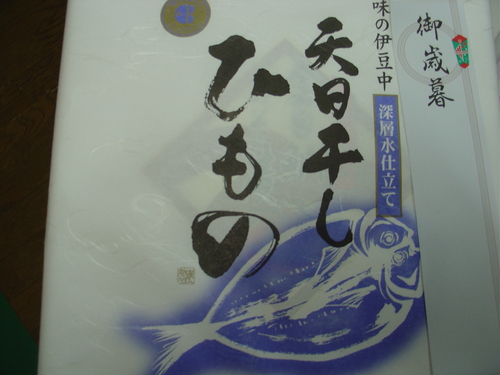 御歳暮
味の伊豆中
深層水仕立て
天日干し
ひもの